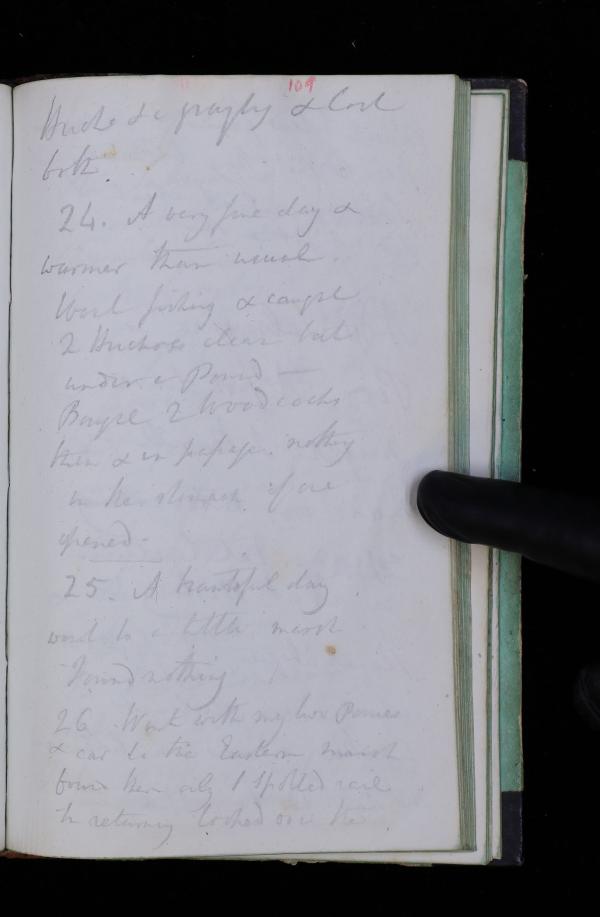 109
Hucho & a grayling & lost
both.
24. A very fine day &
warmer than usual.
Went fishing & caught
2 Huchos clean but
under a Pound —
Bought 2 Woodcocks
thin & in passage. nothing
in the stomach of one
opened -
25. A beautiful day
went to a little marsh
Found nothing
26 Went with my two Ponies
& car to the Eastern marsh
found there only 1 spotted rail
In returning looked over the